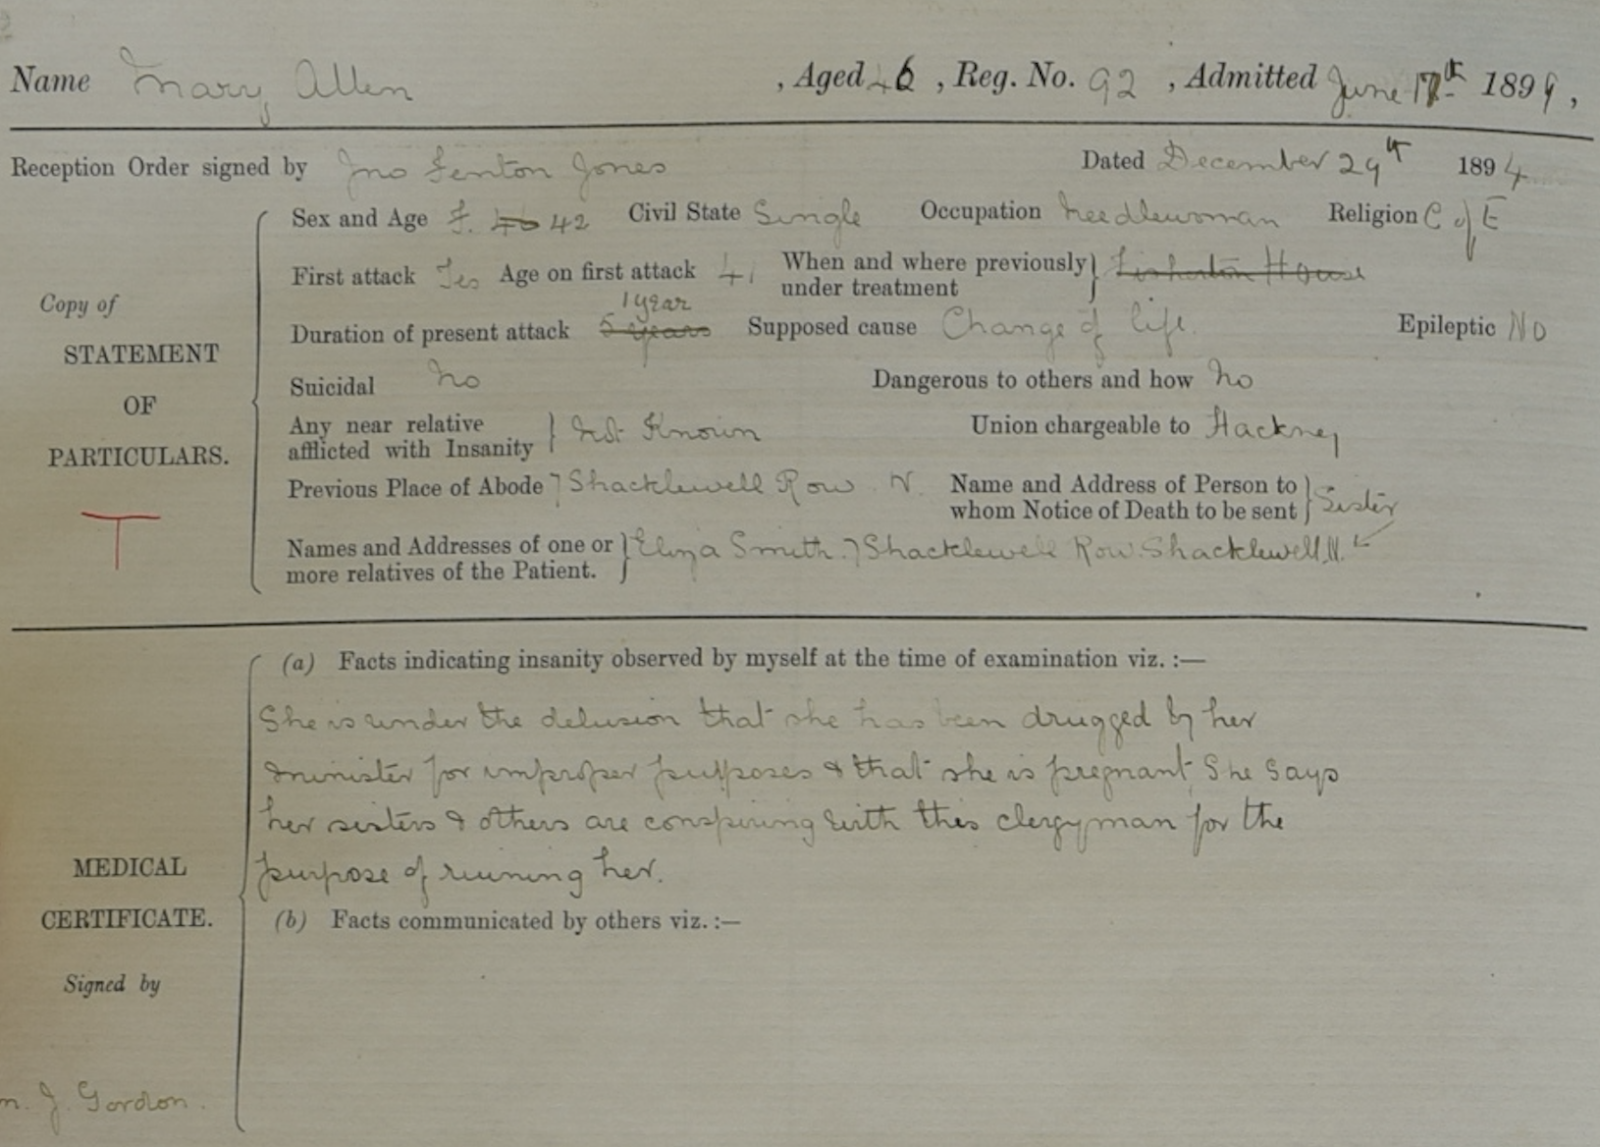 Name Mary Allen , Aged 46 , Reg. No. 92 , Admitted June 17th 1899 ,
Reception Order signed by Jno Fenton Jones Dated December 29th 1894
Sex and Age F. 42 Civil State Single Occupation Needlewoman Religion C of E
First attack Yes Age on first attack 41 When and where previously under treatment Fisherton House
1 year
Duration of present attack 5 years Supposed cause Change of life. Epileptic No
Copy of STATEMENT OF PARTICULARS.
Suicidal No Dangerous to others and how No
Any near relative afflicted with Insanity Not Known Union chargeable to Hackney
Previous Place of Abode 7 Shacklewell Row N. Name and Address of Person to whom Notice of Death to be sent Sister
T
Names and Addresses of one or more relatives of the Patient. Eliza Smith. 7 Shacklewell Row. Shacklewell. N.
(a) Facts indicating insanity observed by myself at the time of examination viz. :—
She is under the delusion that she has been drugged by her
minister for improper purposes & that she is pregnant She says
her sisters & others are conspiring with this clergyman for the
purpose of ruining her.
MEDICAL CERTIFICATE.
(b) Facts communicated by others viz. :—
Signed by
J. Gordon.